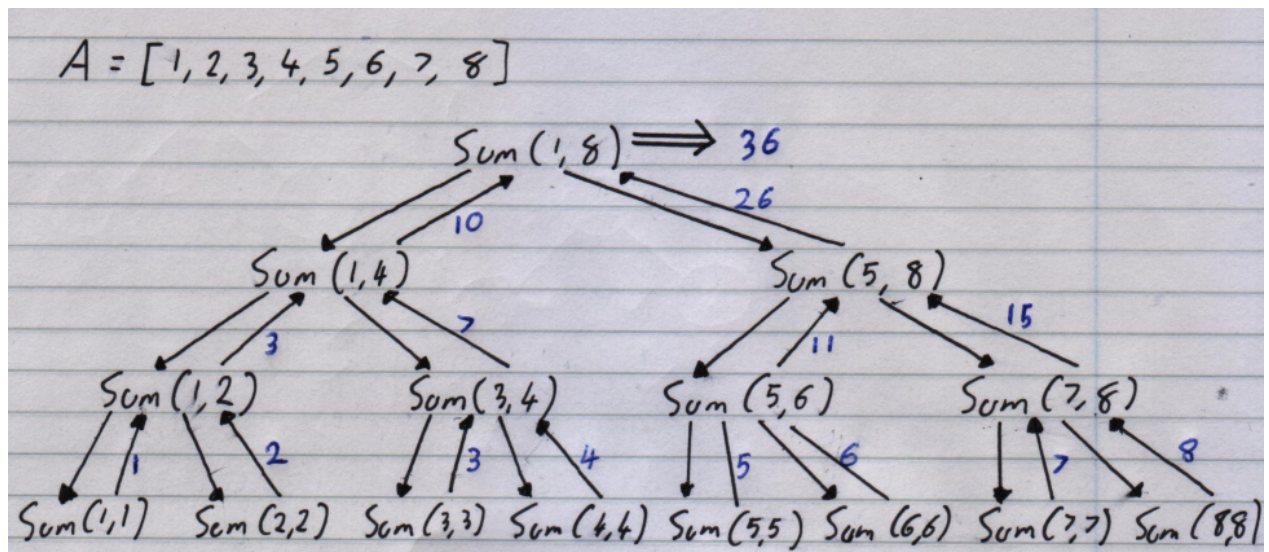 A = [1, 2, 3, 4, 5, 6, 7, 8]
Sum (1, 8) ⟹ 36
10 26
Sum (1,4) Sum (5, 8)
3 7 11 15
Sum (1,2) Sum (3,4) Sum (5,6) Sum (7,8)
1 2 3 4 5 6 7 8
Sum (1,1) Sum (2,2) Sum (3,3) Sum (4,4) Sum (5,5) Sum (6,6) Sum (7,7) Sum (8,8)